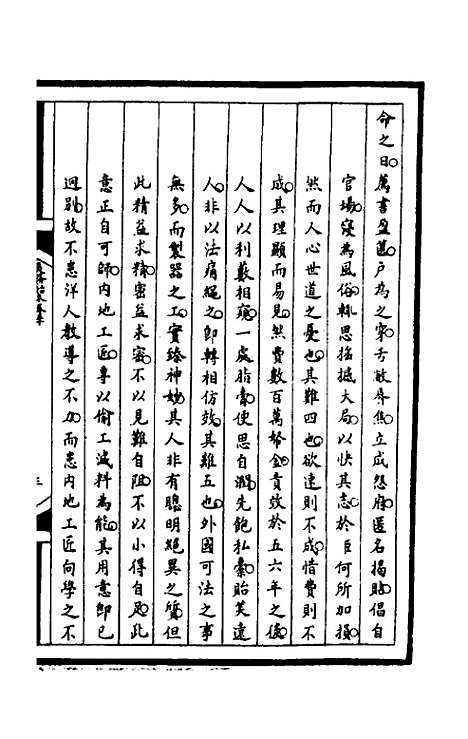 命之日薦書盈篋戶為之穿舌敝唇焦立成怨府匿名揭貼倡自
官場寖為風俗輒思搖撼大局以快其志於臣何所加損
然而人心世道之憂也其難四也欲速則不成惜費則不
成其理顯而易見然費數百萬帑金責效於五六年之後
人人以利藪相窺一處脂膏使思自潤先飽私橐貽笑遠
人非以法痛繩之卽轉相仿效其難五也外國可法之事
無多而製器之工實臻神妙其人非有聰明絕異之質但
此精益求精密益求密不以見難自阻不以小得自足此
意正自可師內地工匠專以偷工減料為能其用意卽已
迥別故不患洋人教導之不力而患內地工匠向學之不
三